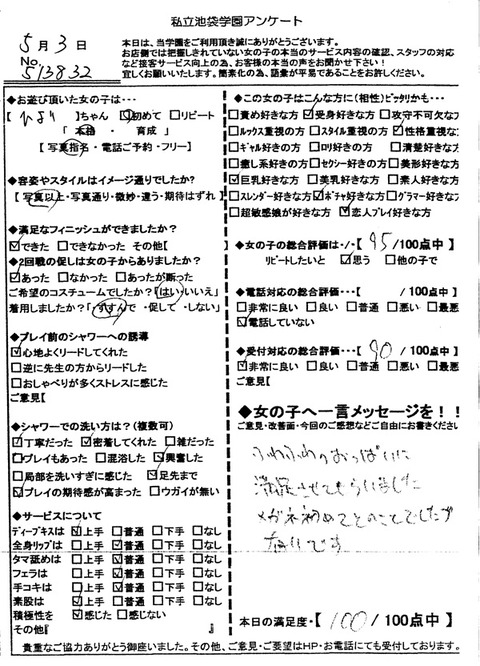 私立池袋学園アンケート
5月3日
No. 513832
本日は、当学園をご利用頂き誠にありがとうございます。
お店側では把握しきれていない女の子の本当のサービス内容の確認、スタッフの対応
など接客サービス向上の為、お客様の本当の声をお聞かせ下さい！
宜しくお願いいたします。簡素化の為、語彙が平易であることをお許しください。
◆お遊び頂いた女の子は・・・
【 ひより 】ちゃん ☑初めて □リピート
「 本格 ・ 育成 」
【写真指名・電話ご予約・フリー】
◆容姿やスタイルはイメージ通りでしたか?
【 写真以上・写真通り・微妙・違う・期待はずれ 】
◆満足なフィニッシュができましたか?
☑できた □できなかった その他【
◆2回戦の促しは女の子からありましたか?
☑あった □なかった □あったが断った
ご希望のコスチュームでしたか?「はい・いいえ」
着用しましたか?「すすんで ・促して ・しない」
◆プレイ前のシャワーへの誘導
☑心地よくリードしてくれた
□逆に先生の方からリードした
□おしゃべりが多くストレスに感じた
ご意見【
◆シャワーでの洗い方は?(複数可)
☑丁寧だった ☑密着してくれた □雑だった
□プレイもあった □混浴した ☑興奮した
□局部を洗いすぎに感じた ☑足先まで
☑プレイの期待感が高まった □ウガイが無い
◆サービスについて
ディープキスは ☑上手 □普通 □下手 □なし
全身リップは □上手 ☑普通 □下手 □なし
タマ舐めは □上手 ☑普通 □下手 □なし
フェラは □上手 ☑普通 □下手 □なし
手コキは □上手 ☑普通 □下手 □なし
素股は ☑上手 □普通 □下手 □なし
積極性を ☑感じた □感じない
その他『 』
◆この女の子はこんな方に(相性)ピッタリかも・・・
□責め好きな方 ☑受身好きな方 □攻守不可欠な方
□ルックス重視の方 □スタイル重視の方 ☑性格重視な方
□ギャル好きの方 □ロリ好きの方 □清楚好きな方
□癒し系好きの方 □セクシー好きの方 □美形好きな方
☑巨乳好きな方 □美乳好きな方 □素人好きな方
□スレンダー好きな方 ☑ポチャ好きな方 □グラマー好きな方
□超敏感娘が好きな方 ☑恋人プレイ好きな方
◆女の子の総合評価は・・・【 95 /100点中 】
リピートしたいと ☑思う □他の子で
◆電話対応の総合評価・・・【 /100点中】
□非常に良い □良い □普通 □悪い □最悪
☑電話していない
◆受付対応の総合評価・・・【 90 /100点中】
☑非常に良い □良い □普通 □悪い □最悪
ご意見【
◆女の子へ一言メッセージを！！
ご意見・改善面・今回のご感想などご自由にお書きください
ふわふわのおっぱいに
満足させてもらいました
メガネ初めてとのことでしたが
本日の満足度・【 100 / 100点中 】
貴重なご協力ありがとう御座いました。その他、ご意見・ご要望はHP・お電話にても受付しております。